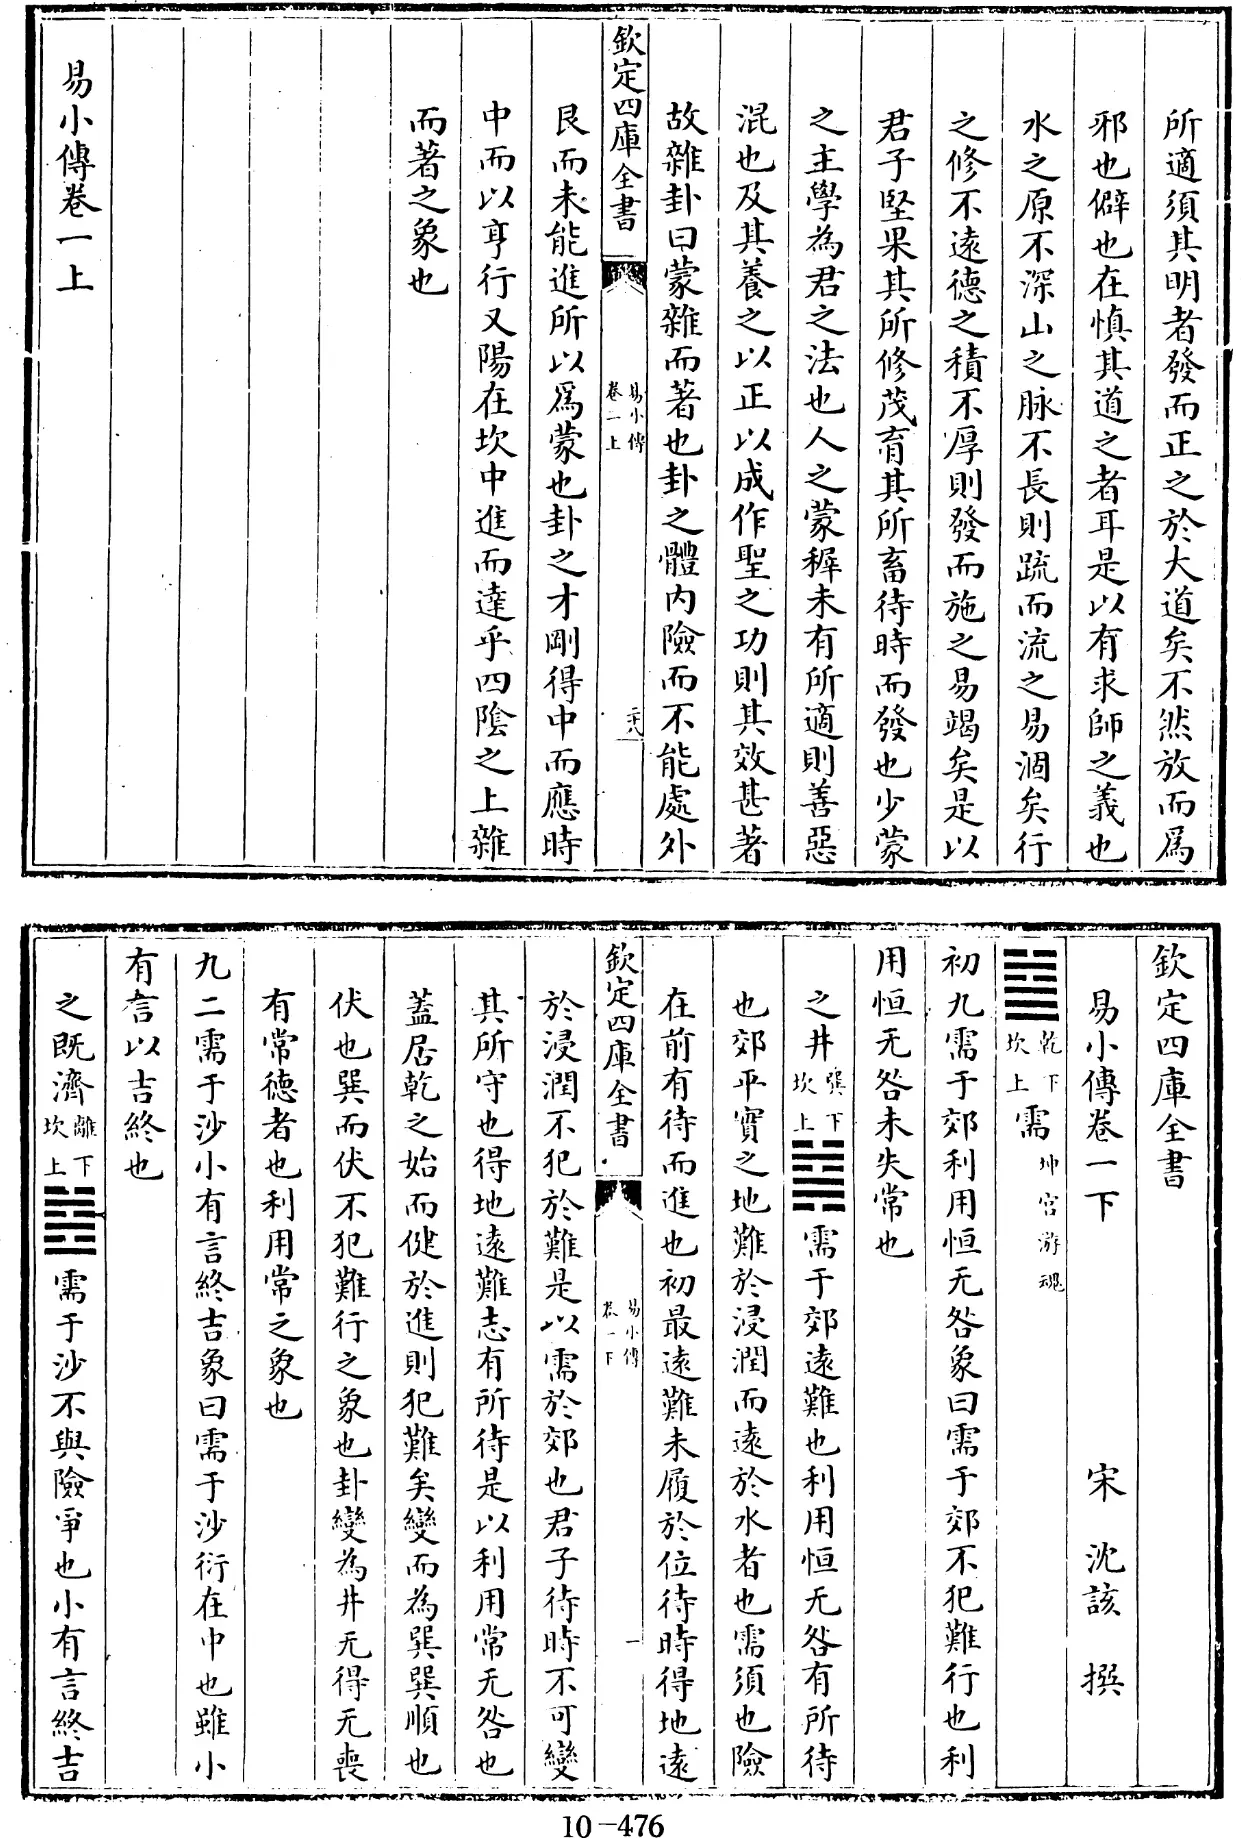 所適須其明者發而正之於大道矣不然放而爲
邪也僻也在慎其道之者耳是以有求師之義也
水之原不深山之脉不長則疏而流之易涸矣行
之修不遠德之積不厚則發而施之易竭矣是以
君子堅果其所修茂育其所畜待時而發也少蒙
之主學為君之法也人之蒙穉未有所適則善惡
混也及其養之以正以成作聖之功則其效甚著
故雜卦曰蒙雜而著也卦之體内險而不能處外
欽定四庫全書
易小傳
卷一上
二十八
艮而未能進所以爲蒙也卦之才剛得中而應時
中而以亨行又陽在坎中進而達乎四陰之上雜
而著之象也
易小傳卷一上
欽定四庫全書
易小傳卷一下
宋 沈該 撰
䷄乾下坎上需坤宮游魂
初九需于郊利用恒无咎象曰需于郊不犯難行也利
用恒无咎未失常也
之井巽下坎上䷯需于郊遠難也利用恒无咎有所待
也郊平實之地難於浸潤而遠於水者也需須也險
在前有待而進也初最遠難未履於位待時得地遠
欽定四庫全書
易小傳
卷一下
一
於浸潤不犯於難是以需於郊也君子待時不可變
其所守也得地遠難志有所待是以利用常无咎也
蓋居乾之始而健於進則犯難矣變而為巽巽順也
伏也巽而伏不犯難行之象也卦變為井无得无喪
有常德者也利用常之象也
九二需于沙小有言終吉象曰需于沙衍在中也雖小
有言以吉終也
之既濟離下坎上䷾需于沙不與險爭也小有言終吉
10-476